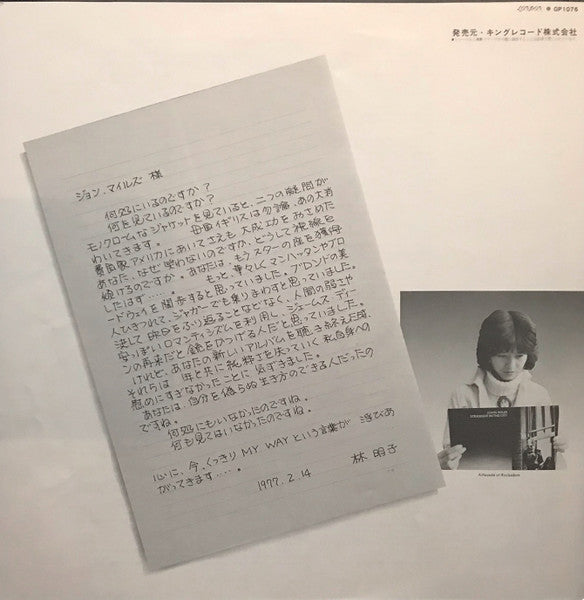 GP1076
発売元・キングレコード株式会社
ジョン・マイルズ 様
何処にいるのですか？
何を見ているのですか？
モノクロームなジャケットを見ていると、二つの疑問が
わいてきます。 母国イギリスは勿論、あの大消
費国家アメリカにおいてさえも大成功をおさめた
あなた、なぜ笑わないのですか、どうして視線を
傾けるのですか。あなたは、もうスターの座を獲得
したはず‥‥。 もっと、華々しくマンハッタンやブロ
ードウェイを闊歩すると思っていました。ブロンドの美
人ひきつれて、ジャガーでも乗りまわすと思っていました。
決して昨日をふり返ることなどなく、人間の弱さや
安っぽいロマンティシズムを利用し、ジェームス・ディー
ンの再来だと銘をひっさげる人だと思っていました。
けれど、あなたの新しいアルバムを聴き終えた頃、
それらは 年と共に純粋さを失っていく私自身への
慰めにすぎなかったことに気ずきました。
あなたは、自分を偽らぬ生き方のできる人だったの
ですね。
何処にもいなかったのですね。
何も見てはいなかったのですね。
心に、今、くっきり MY WAY という言葉が 浮びあ
がってきます‥‥。
林 明子
1977.2.14
JOHN MILES
STRANGER IN THE CITY